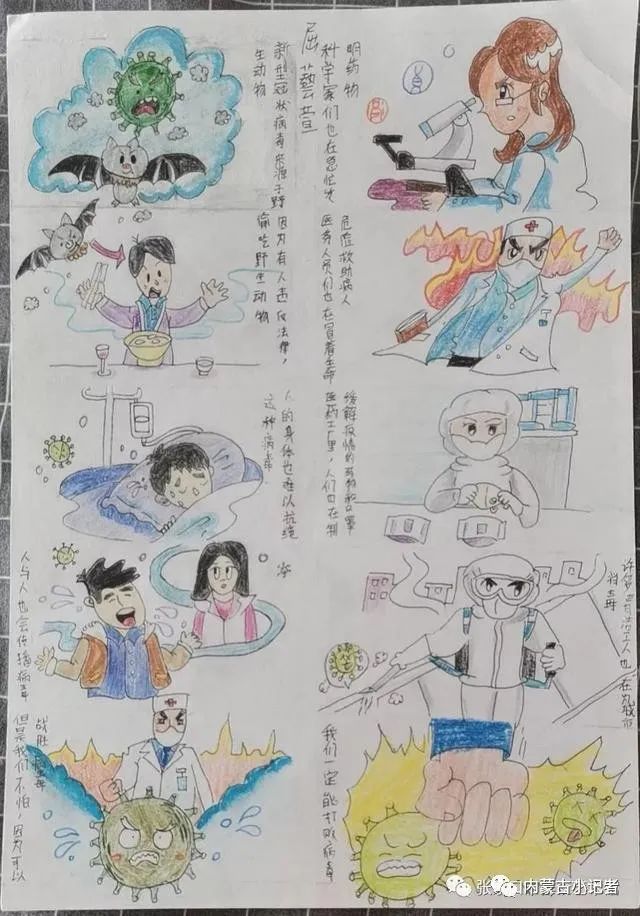 新型冠状病毒来源于野
生动物
因为有人违反法律，
偷吃野生动物
人的身体也难以抗
这种病毒.
人与人也会传播病毒
但是我们不怕，因为可以
战胜病毒
屈藝
科学家们也在急忙发
明药物
医务人员们也在冒着生命
危险救助病人
医药工厂里，人们也在制
缓解疫情的药物和口罩
许多清洁工人也在为城市
消毒
我们一定能打败病毒
内蒙古小记者